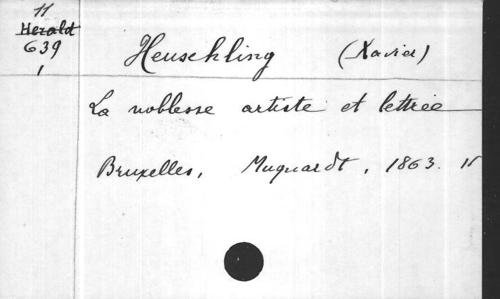 11
Herald
639
1
Heuschling (Xavier)
La noblesse artiste et lettrée
Bruxelles, Muquardt, 1863.